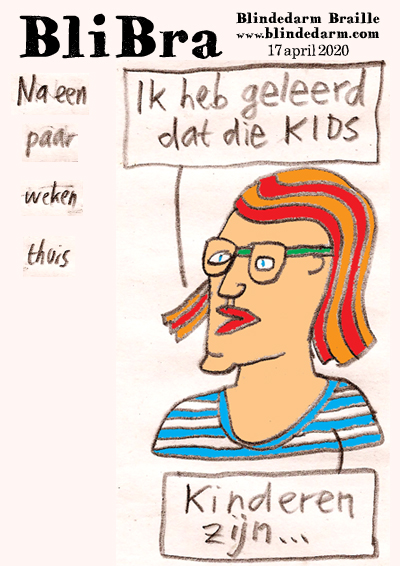 BliBra
Blindedarm Braille
www.blindedarm.com
17 april 2020
Na een
paar
weken
thuis
Ik heb geleerd
dat die KIDS
Kinderen
zijn...